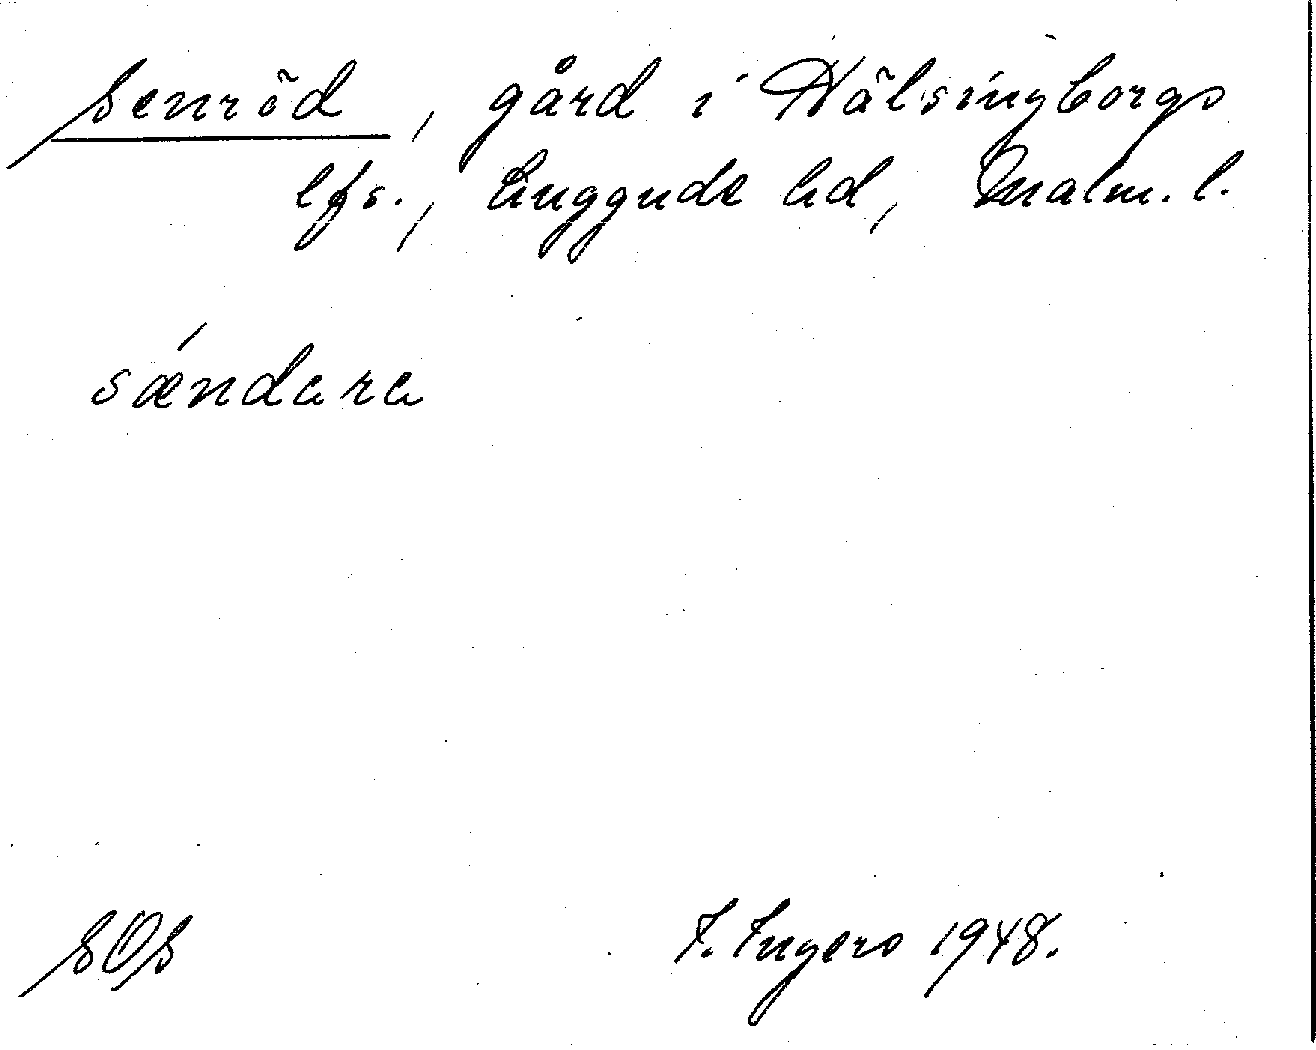 Senröd, gård i Hälsingborgs
lfs., Luggude hd, Malm. l.
sǽndara
SOS
F. Ingers 1948.